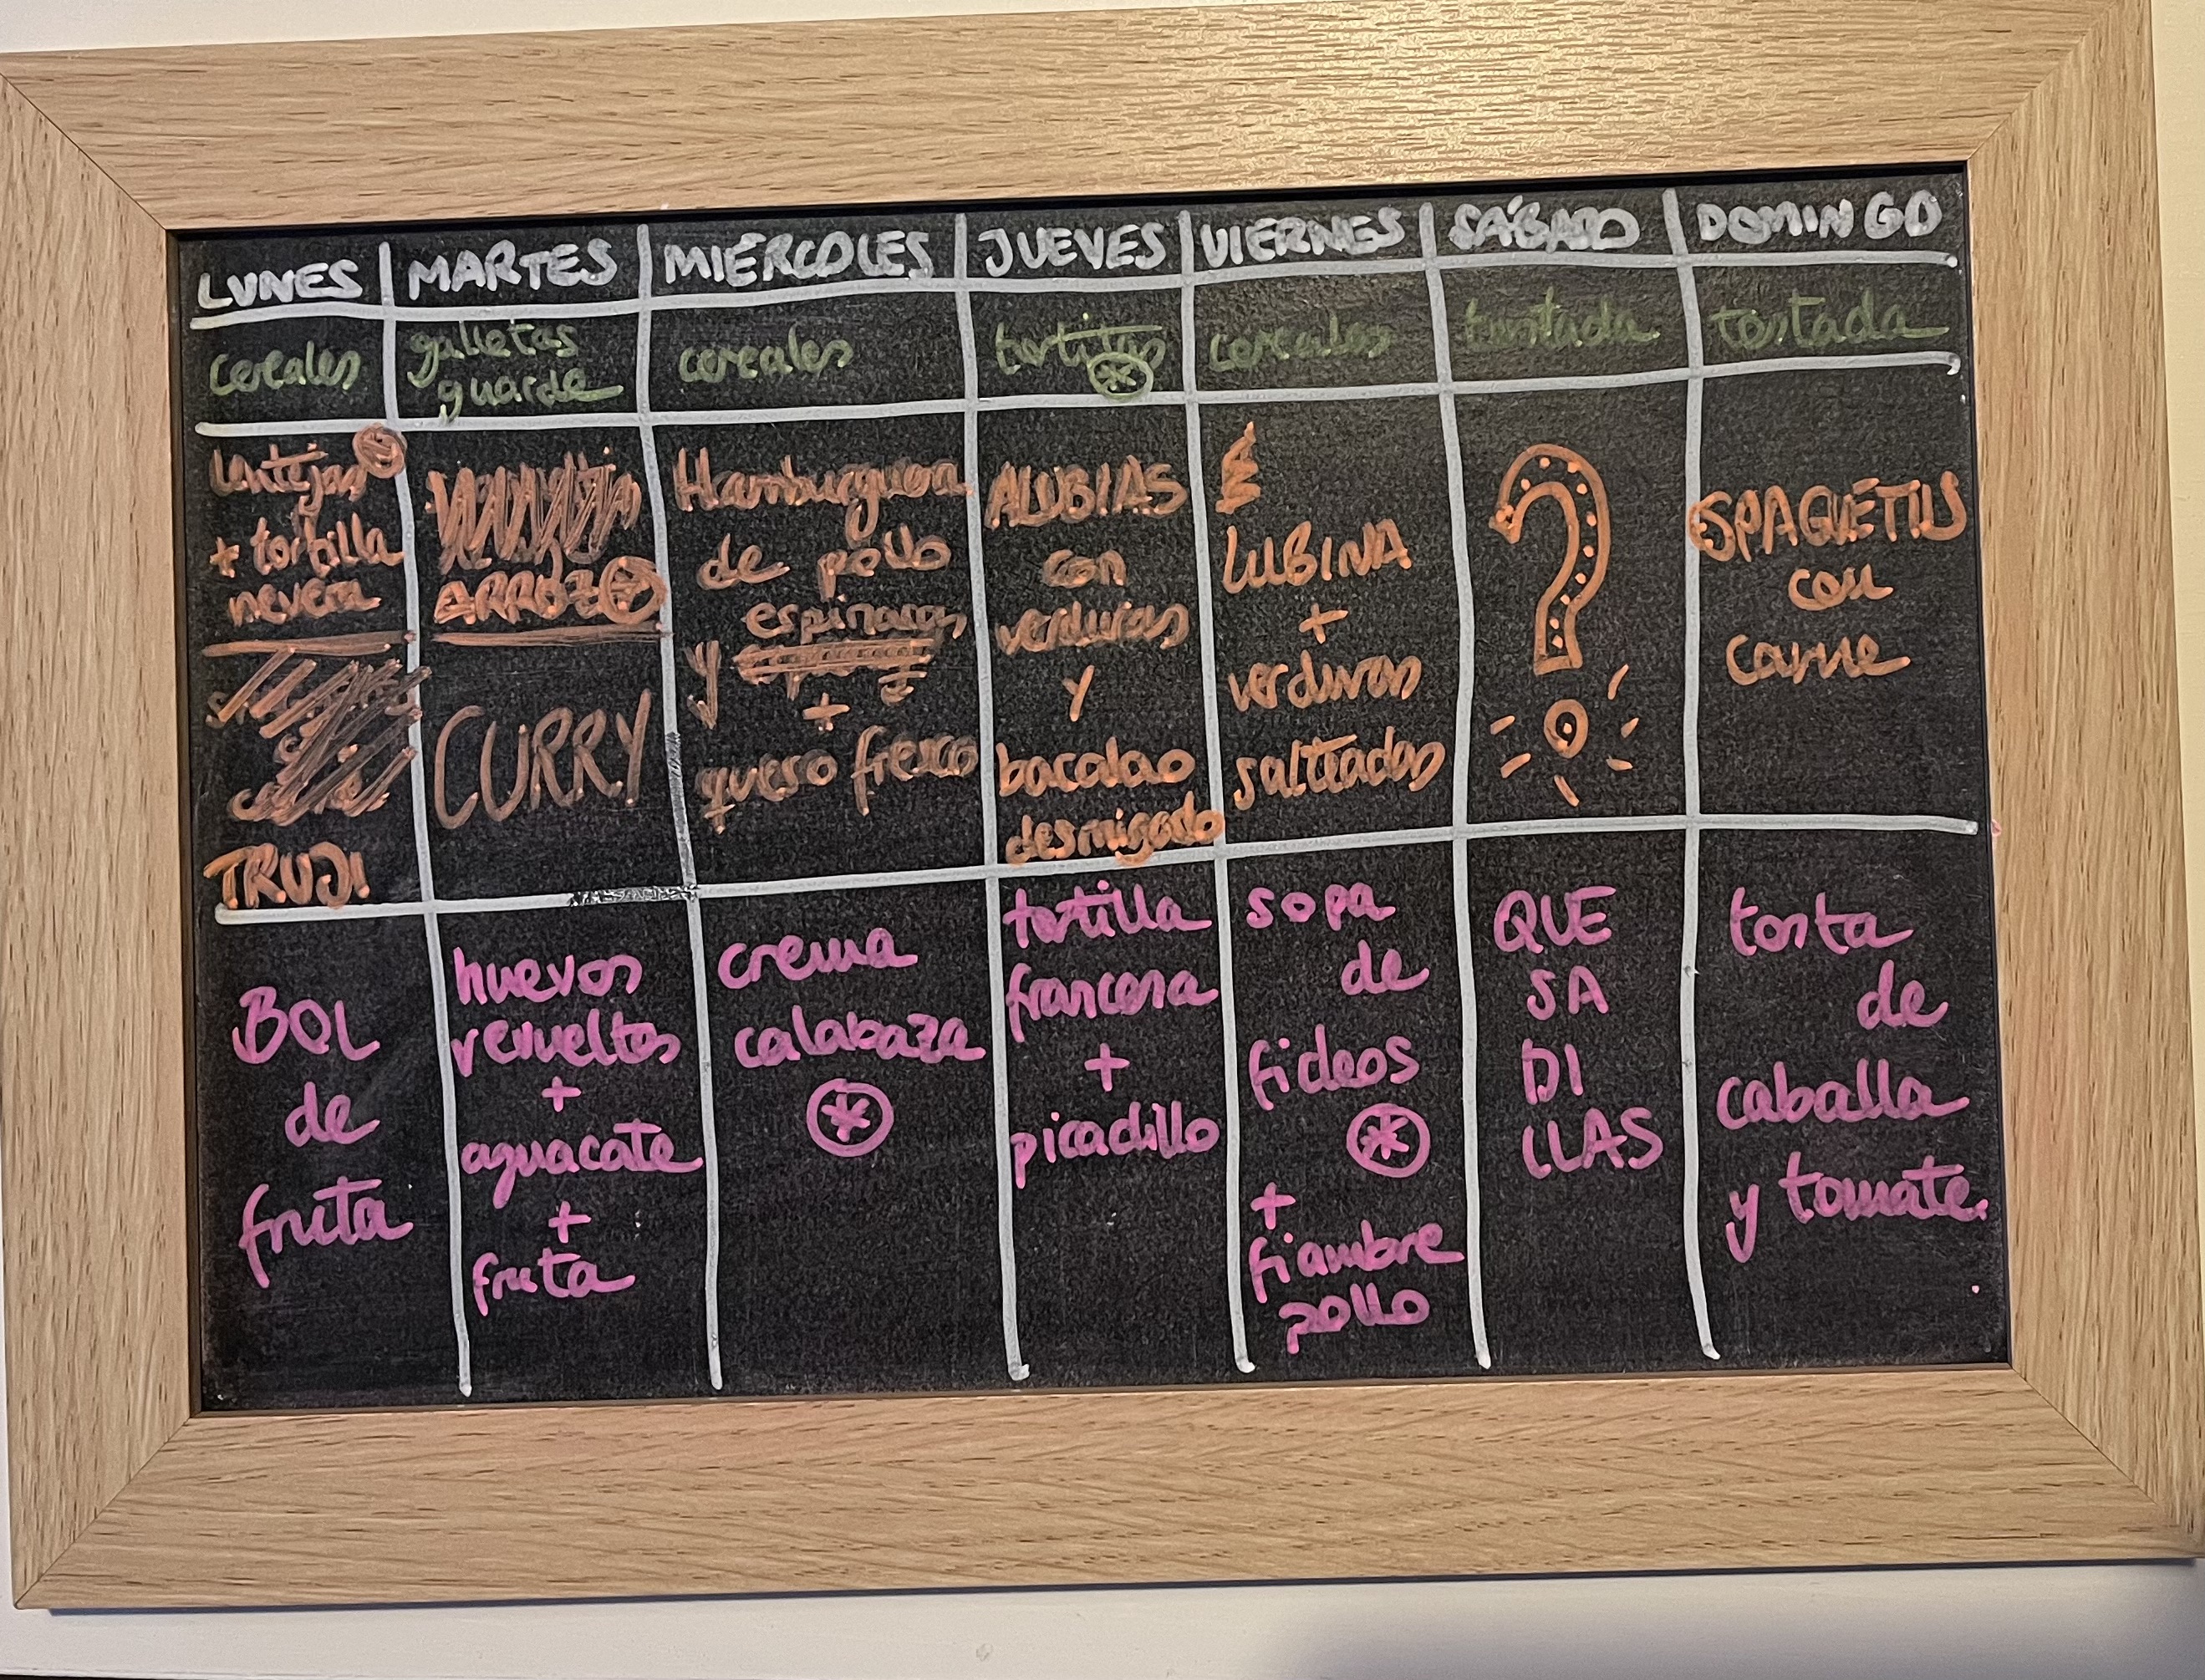 LUNES MARTES MIÉRCOLES JUEVES VIERNES SÁBADO DOMINGO
cereales
galletas
guarde
cereales
tortitas
cereales
tostada
tostada
lentejas
+ tortilla
nevera
TRUJI
ARROZ
CURRY
Hamburguesa
de pollo
espinacas
y
+
queso fresco
ALUBIAS
con
verduras
y
bacalao
desmigado
LUBINA
+
verduras
salteadas
?
ESPAGUETIS
con
carne
BOL
de
fruta
huevos
revueltos
+
aguacate
+
fruta
crema
calabaza
*
tortilla
francesa
+
picadillo
sopa
de
fideos
*
+
fiambre
pollo
QUE
SA
DI
LLAS
tosta
de
caballa
y tomate.